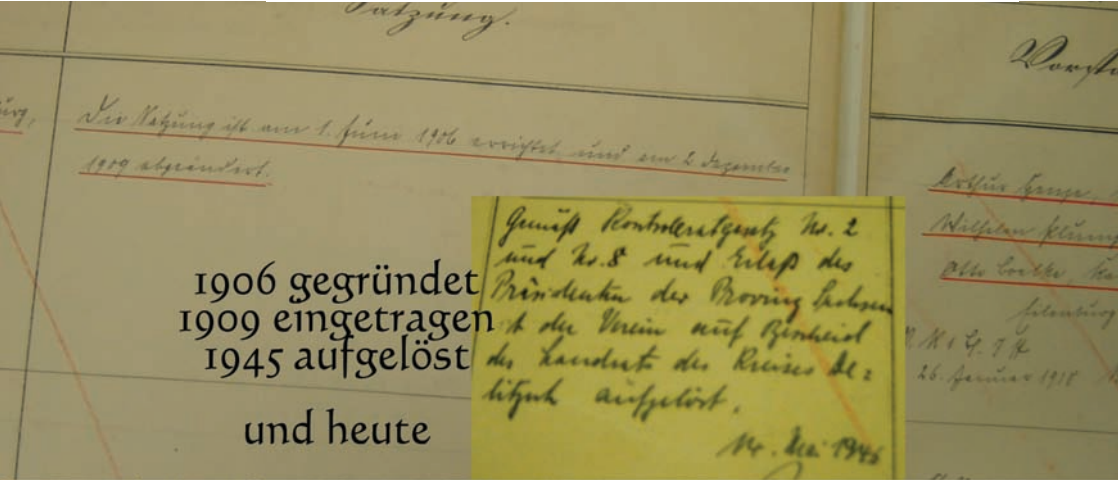 Satzung.
Die Satzung ist am 1. Juni 1906 errichtet und am 2 Dezember
1909 abgeändert.
1906 gegründet
1909 eingetragen
1945 aufgelöst
und heute
Gemäß Kontrollratgesetz Nr. 2
und Nr. 8 und Erlaß des
Präsidenten der Provinz Sachsen
t der Verein auf Bescheid
des Landrats des Kreises De=
litzsch aufgelöst.
Mai 1946
Vorsta
Arthur
Wilhelm
Otto
Eilenburg
26. Januar 1918